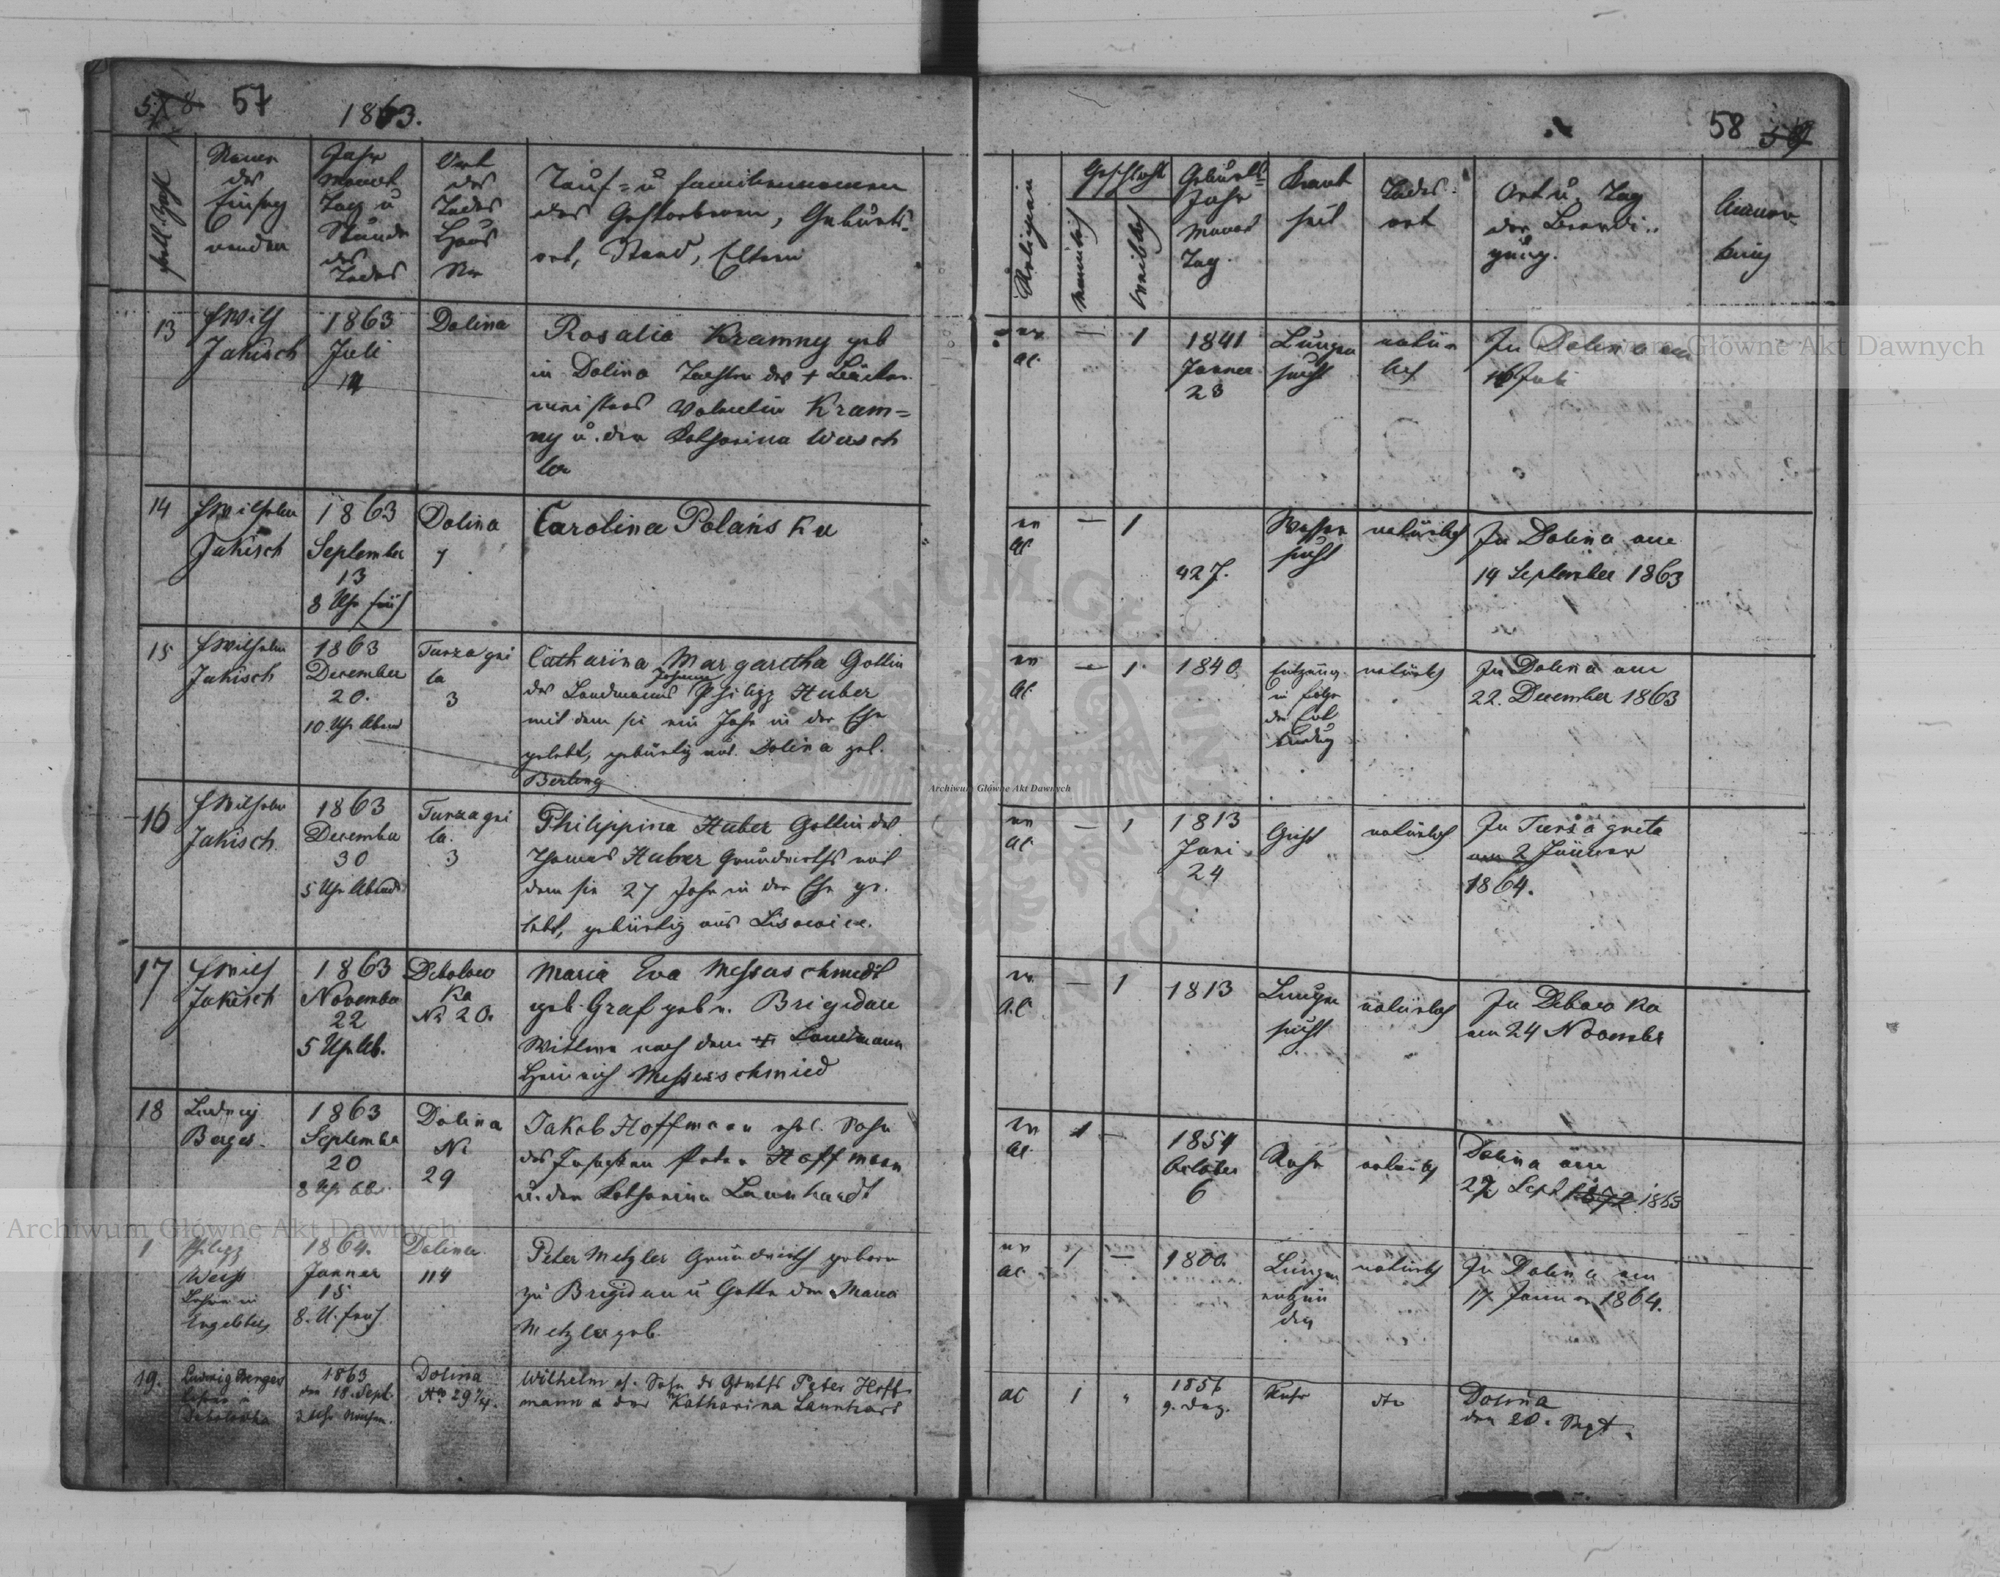 57
1863.
Namen
des
Einseg
nenden
Jahr
Monat
Tag u
Stunde
des
Todes
Ort
des
Todes
Haus
Nr
Tauf- u Familiennamen
des Gestorbenen, Geburts-
ort, Stand, Eltern
13
Jakisch
1863
Juli
Dolina
Rosalia Kramny geb
in Dolina Tochter des + Bäcker
meisters Valentin Kram=
ny u. der Katharina Wasch
14
FWilhelm
Jakisch
1863
September
13
8 Uhr früh
Dolina
7
Carolina Polańs Ka
15
FWilhelm
Jakisch
1863
December
20.
10 Uhr Abend
Turza gni
la
3
Catharina Margaretha Gattin
des Landmanns Johann Philipp Huber
mit dem sie ein Jahr in der Ehe
gelebt, gebürtig aus Dolina geb.
Berling
16
FWilhelm
Jakisch
1863
December
30
5 Uhr Abends
Turza gni
la.
3
Philippina Huber Gattin des
Thomas Huber Grundwirths mit
dem sie 27 Jahr in der Ehe ge-
lebt, gebürtig aus
17
FWilh
Jakisch
1863
November
22
5 Uhr Ab.
Debolow
Ka
Nr 20.
Maria Eva Messerschmidt
geb. Graf geb. v. Brigidau
Wittwe nach dem + Landmann
Heinrich Messerschmied
18
Ludwig
Berges
1863
September
20
8 Uhr
Dolina
Nr
29
Jakob Hoffmann ehel. Sohn
des Insassen Peter Hoffmann
u. der Katharina Launhardt
1
Philipp
Weiss
Lehrer in
Engelsberg
1864.
Janner
15
8. U. früh
Dolina
114
Peter Metzler Grundwirth geboren
zu Brigidau u Gatte der Maria
Metzler geb.
19.
Ludwig Berges
Lehrer in
1863
den 18. Sept.
3 Uhr
Dolina
Wilhelm eh. Sohn des Grwths Peter Hoff-
mann u der Katharina Launhard
58
Religion
Geschlecht
männlich
weiblich
Geburts-
Jahr
Monat
Tag.
Krank
heit
Todes-
art
Ort u. Tag
der Beerdi-
gung.
Anmer-
kung
ev
ac.
1
1841
Janner
23
Lungen
sucht
natür-
lich
In Dolina am
16 Juli
ev
ac
—
1
42 J.
Wasser
sucht
natürlich
In Dolina am
14 September 1863
ev
ac.
—
1.
1840.
Entzündg.
in Folge
der Ent
bindung
natürlich
In Dolina am
22. December 1863
ev
ac.
—
1
1813
Juni
24
Gicht
natürlich
In Turza gnila
am 2 Jänner
1864.
ev
a.c
—
1
1813
Lungen
sucht
natürlich
In Debow Ka
am 24 November
ev
ac.
1
—
1854
October
6
Ruhr
natürlich
Dolina am
Sept 1863
ev
ac.
1
—
1800.
Lungen
entzün
dung
natürlich
In Dolina am
17 Jänner 1864.
ac
1
"
Ruhr
dto
Dolina
den 20. Sept.
Archiwum Główne Akt Dawnych
Archiwum Główne Akt Dawnych
Archiwum Główne Akt Dawnych